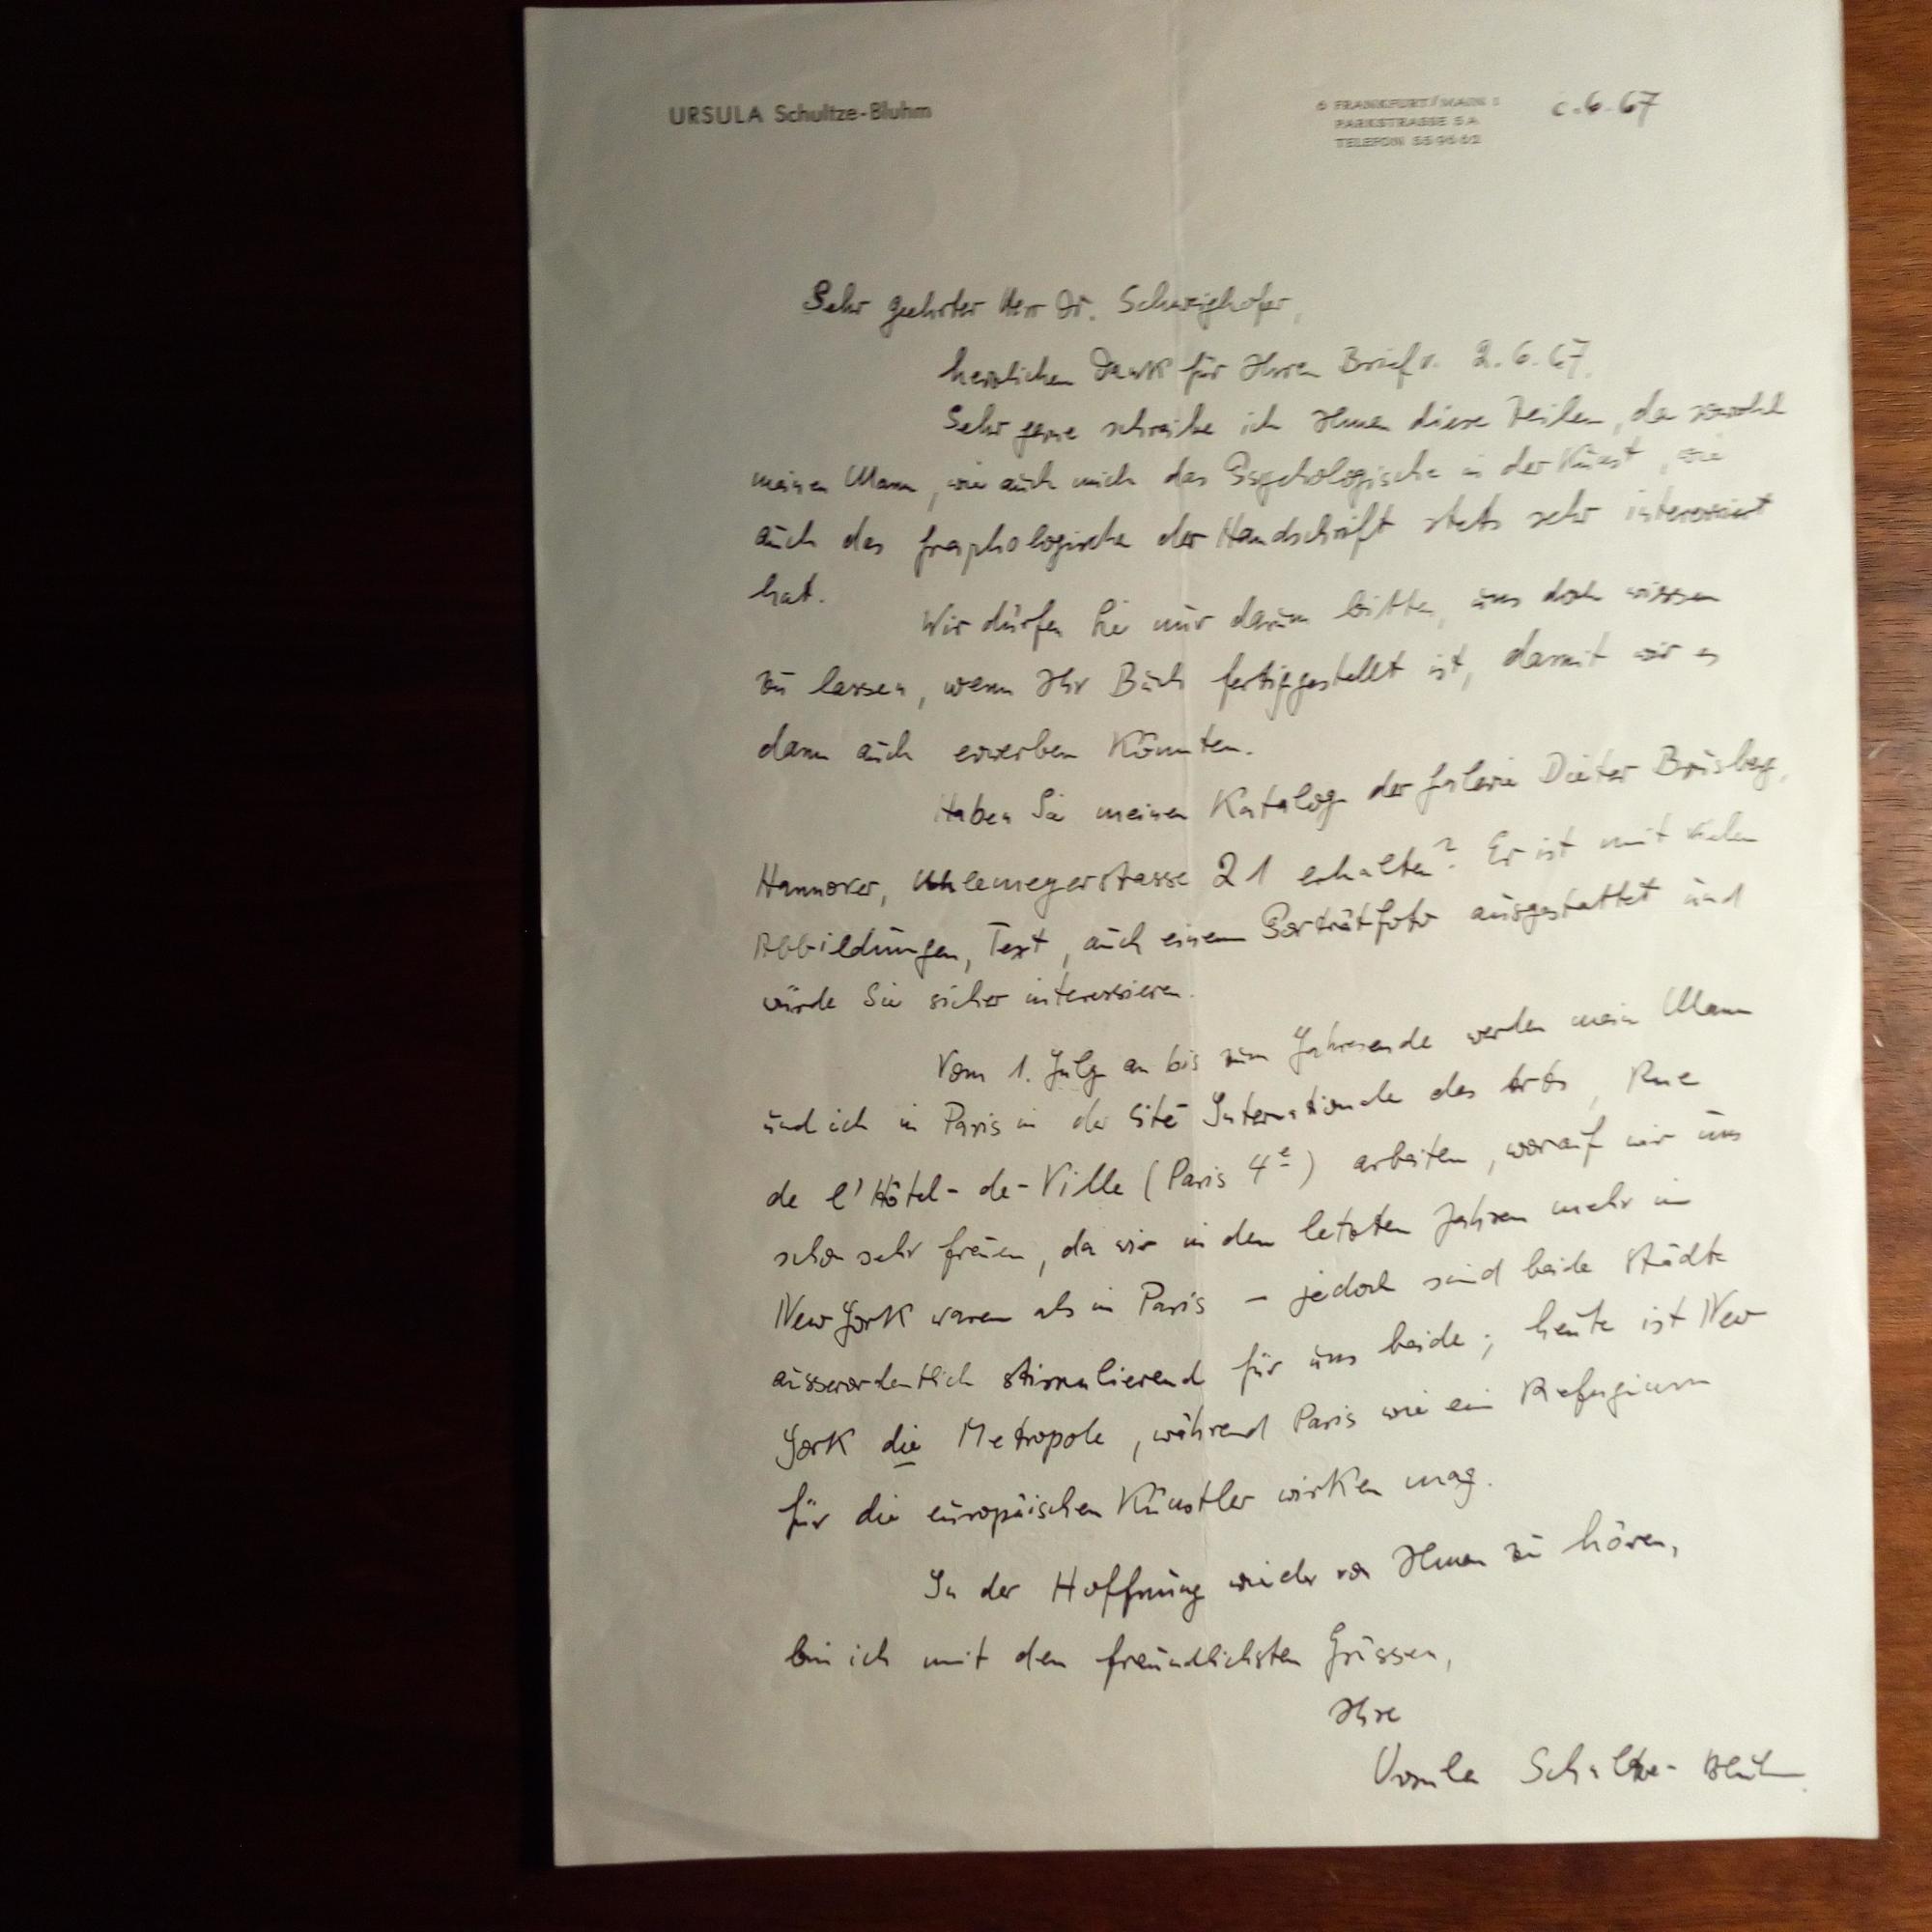 URSULA Schultze-Bluhm
6 FRANKFURT/MAIN 1
PARKSTRASSE 5A
TELEFON
6-67
Sehr geehrter Herr Dr. Schweighofer,
herzlichen Dank für Ihren Brief v. 2.6.67.
Sehr gerne schreibe ich Ihnen diese Zeilen, da sowohl
meinen Mann, wie auch mich das Psychologische in der Kunst, wie
auch das graphologische der Handschrift stets sehr interessiert
hat.
Wir dürfen Sie nur darum bitten, uns doch wissen
zu lassen, wann Ihr Buch fertiggestellt ist, damit wir es
dann auch erwerben könnten.
Haben Sie meinen Katalog der Galerie Dieter Brusberg,
Hannover, Uhlemeyerstrasse 21 erhalten? Er ist mit vielen
Abbildungen, Text, auch einem Porträtfoto ausgestattet und
würde Sie sicher interessieren.
Vom 1. July an bis zum Jahresende werden mein Mann
und ich in Paris in der Cité Internationale des Arts, Rue
de l'Hôtel-de-Ville (Paris 4e) arbeiten, worauf wir uns
schon sehr freuen, da wir in den letzten Jahren mehr in
New York waren als in Paris – jedoch sind beide Städte
ausserordentlich stimulierend für uns beide; heute ist New
York die Metropole, während Paris wie ein Refugium
für die europäischen Künstler wirken mag.
In der Hoffnung wieder von Ihnen zu hören,
bin ich mit den freundlichsten Grüssen,
Ihre
Ursula Schultze-Bluhm